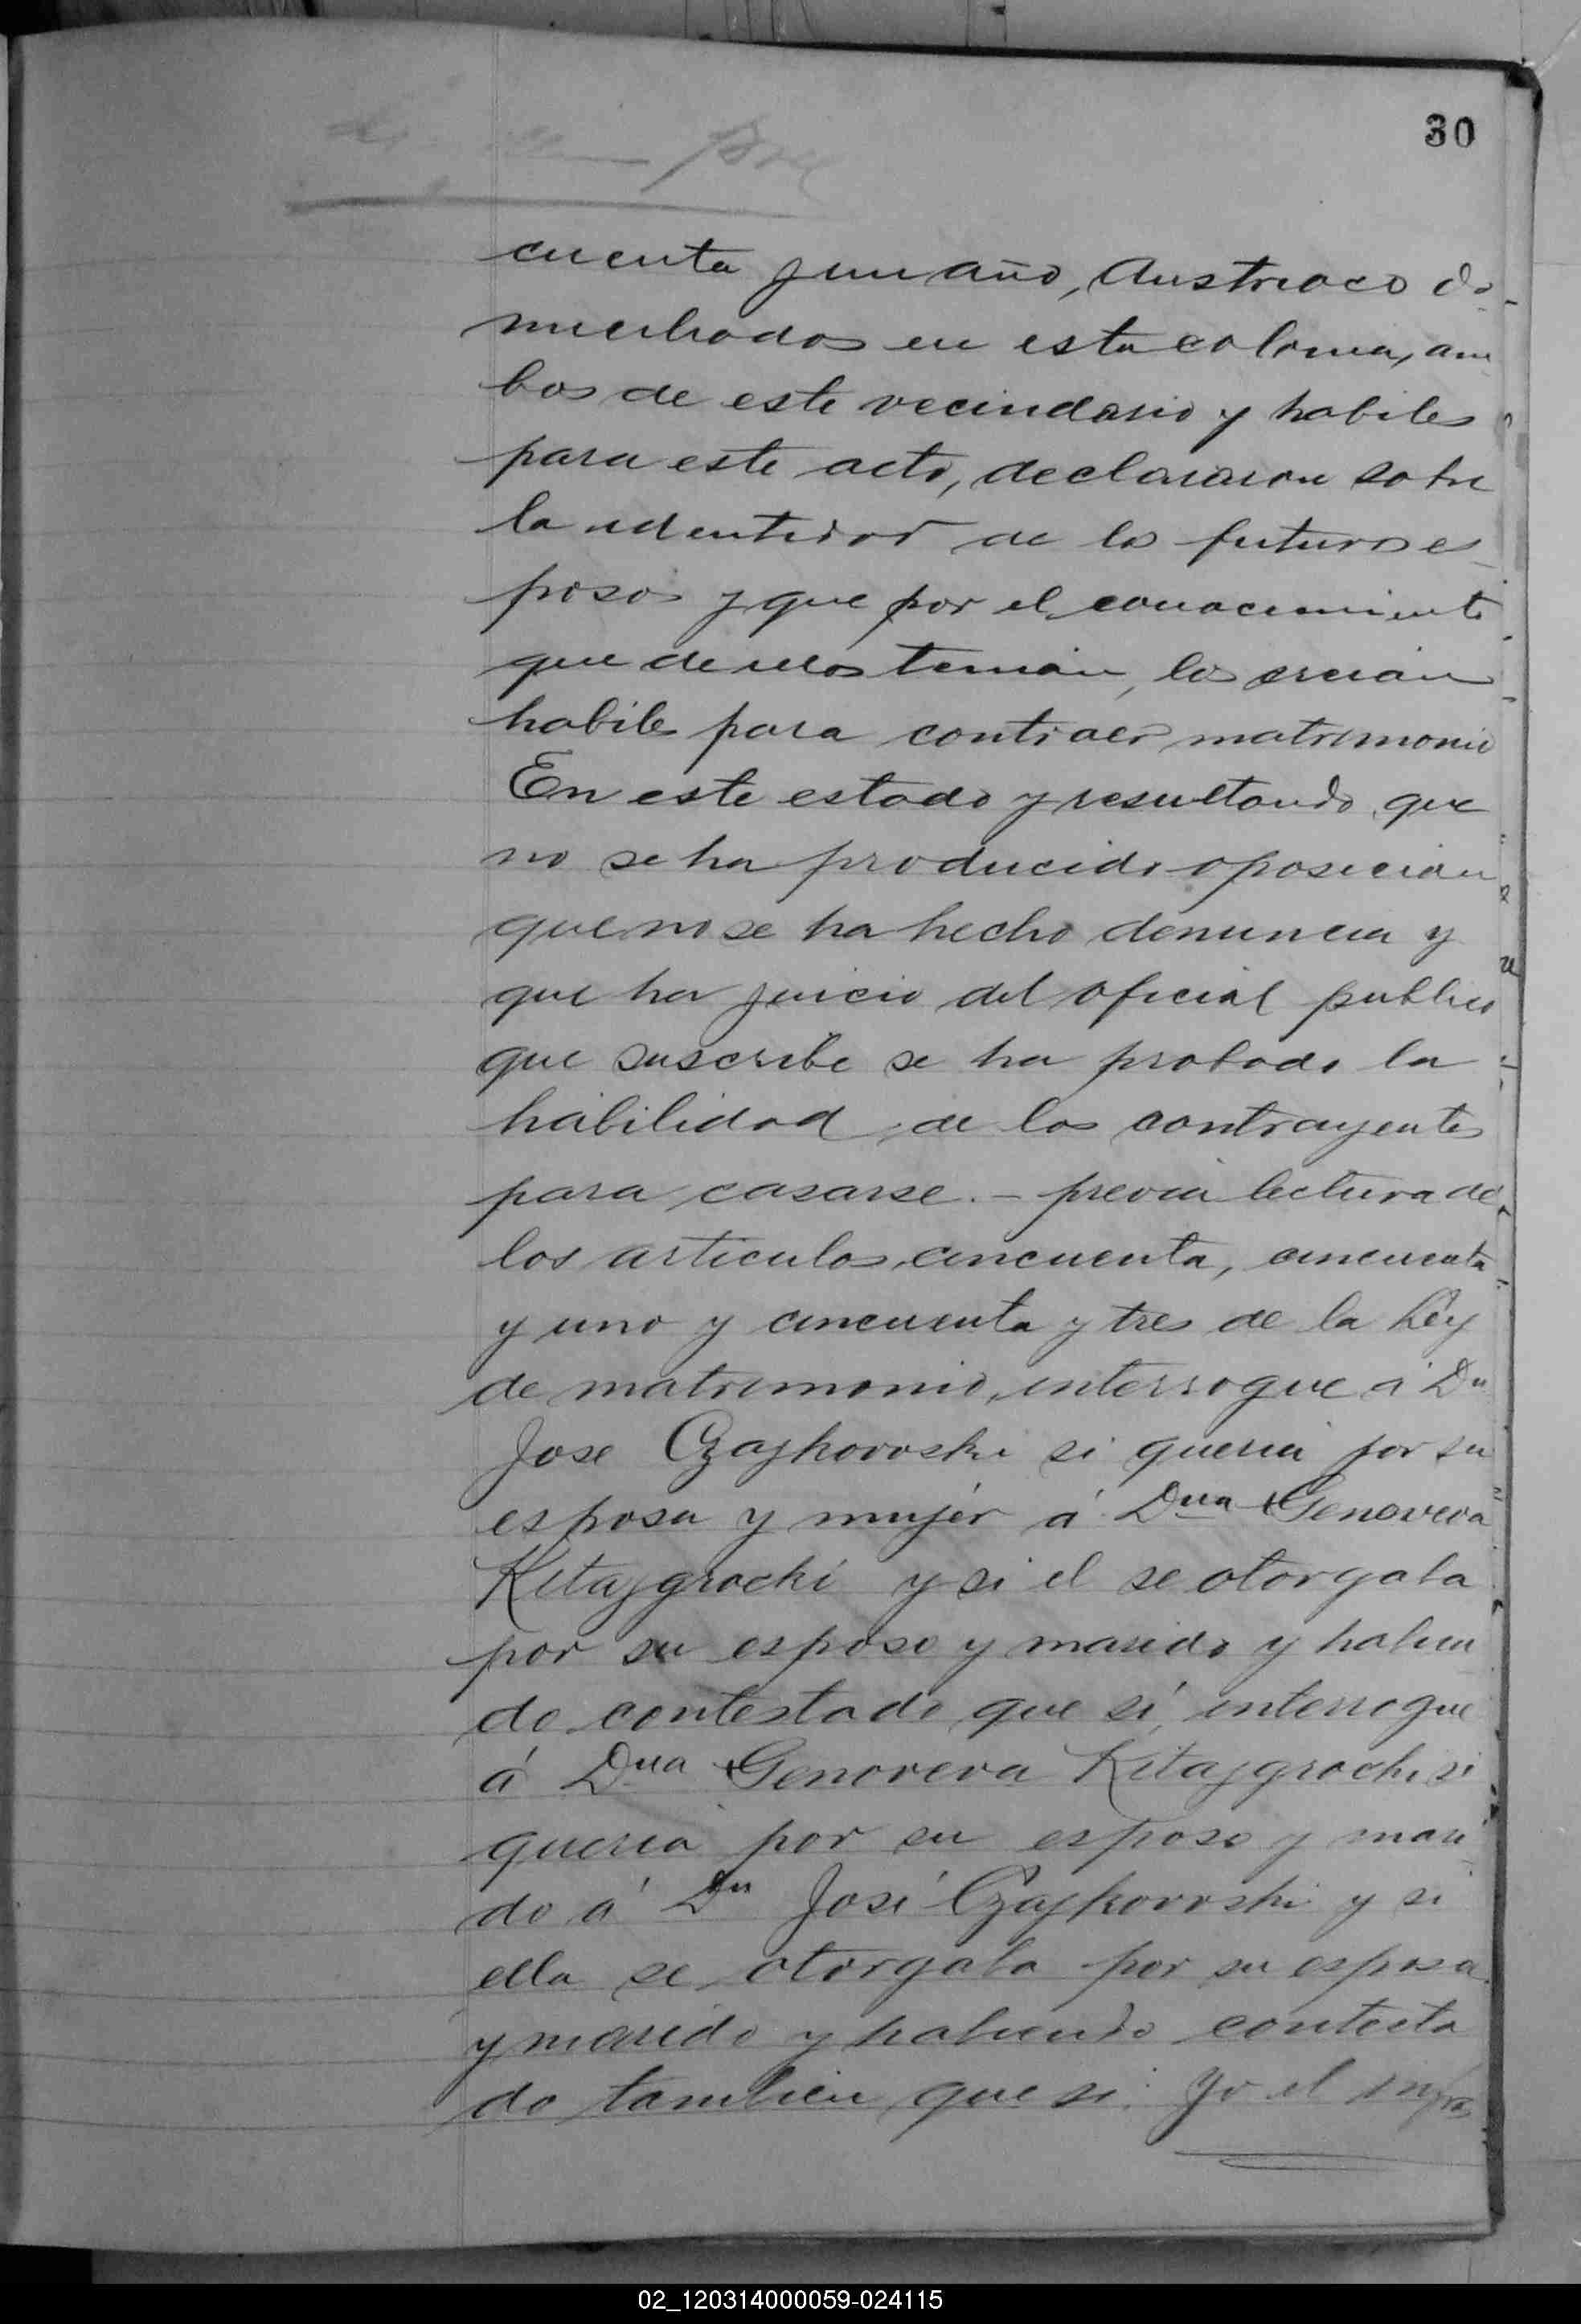 30
cuenta y un año, Austriaco do-
miciliados en esta colonia, am
bos de este vecindario y habiles
para este acto, declararon sobre
la identidad de los futuros es-
posos y que por el conocimiento
que de ellos tenian, los creian
habiles para contraer matrimonio
En este estado y resultando que
no se ha producido oposicion
que no se ha hecho denuncia y
que ha juicio del oficial publico
que suscribe se ha probado la
habilidad de los contrayentes
para casarse. - previa lectura de
los articulos cincuenta, cincuenta
y uno y cincuenta y tres de la Ley
de matrimonio, interrogue á Dn
Jose Czajkovoski si queria por su
esposa y mujer á Dña Genoveva
Kitajgrocki y si el se otorgaba
por su esposo y marido y habien
do contestado que sí, interrogue
á Dña Genoveva Kitajgrocki si
queria por su esposo y mari
do á Dn José Czajkovoski y si
ella se otorgaba por su esposa
y marido y habiendo contesta
do tambien que si: Yo el infras
02_120314000059-024115